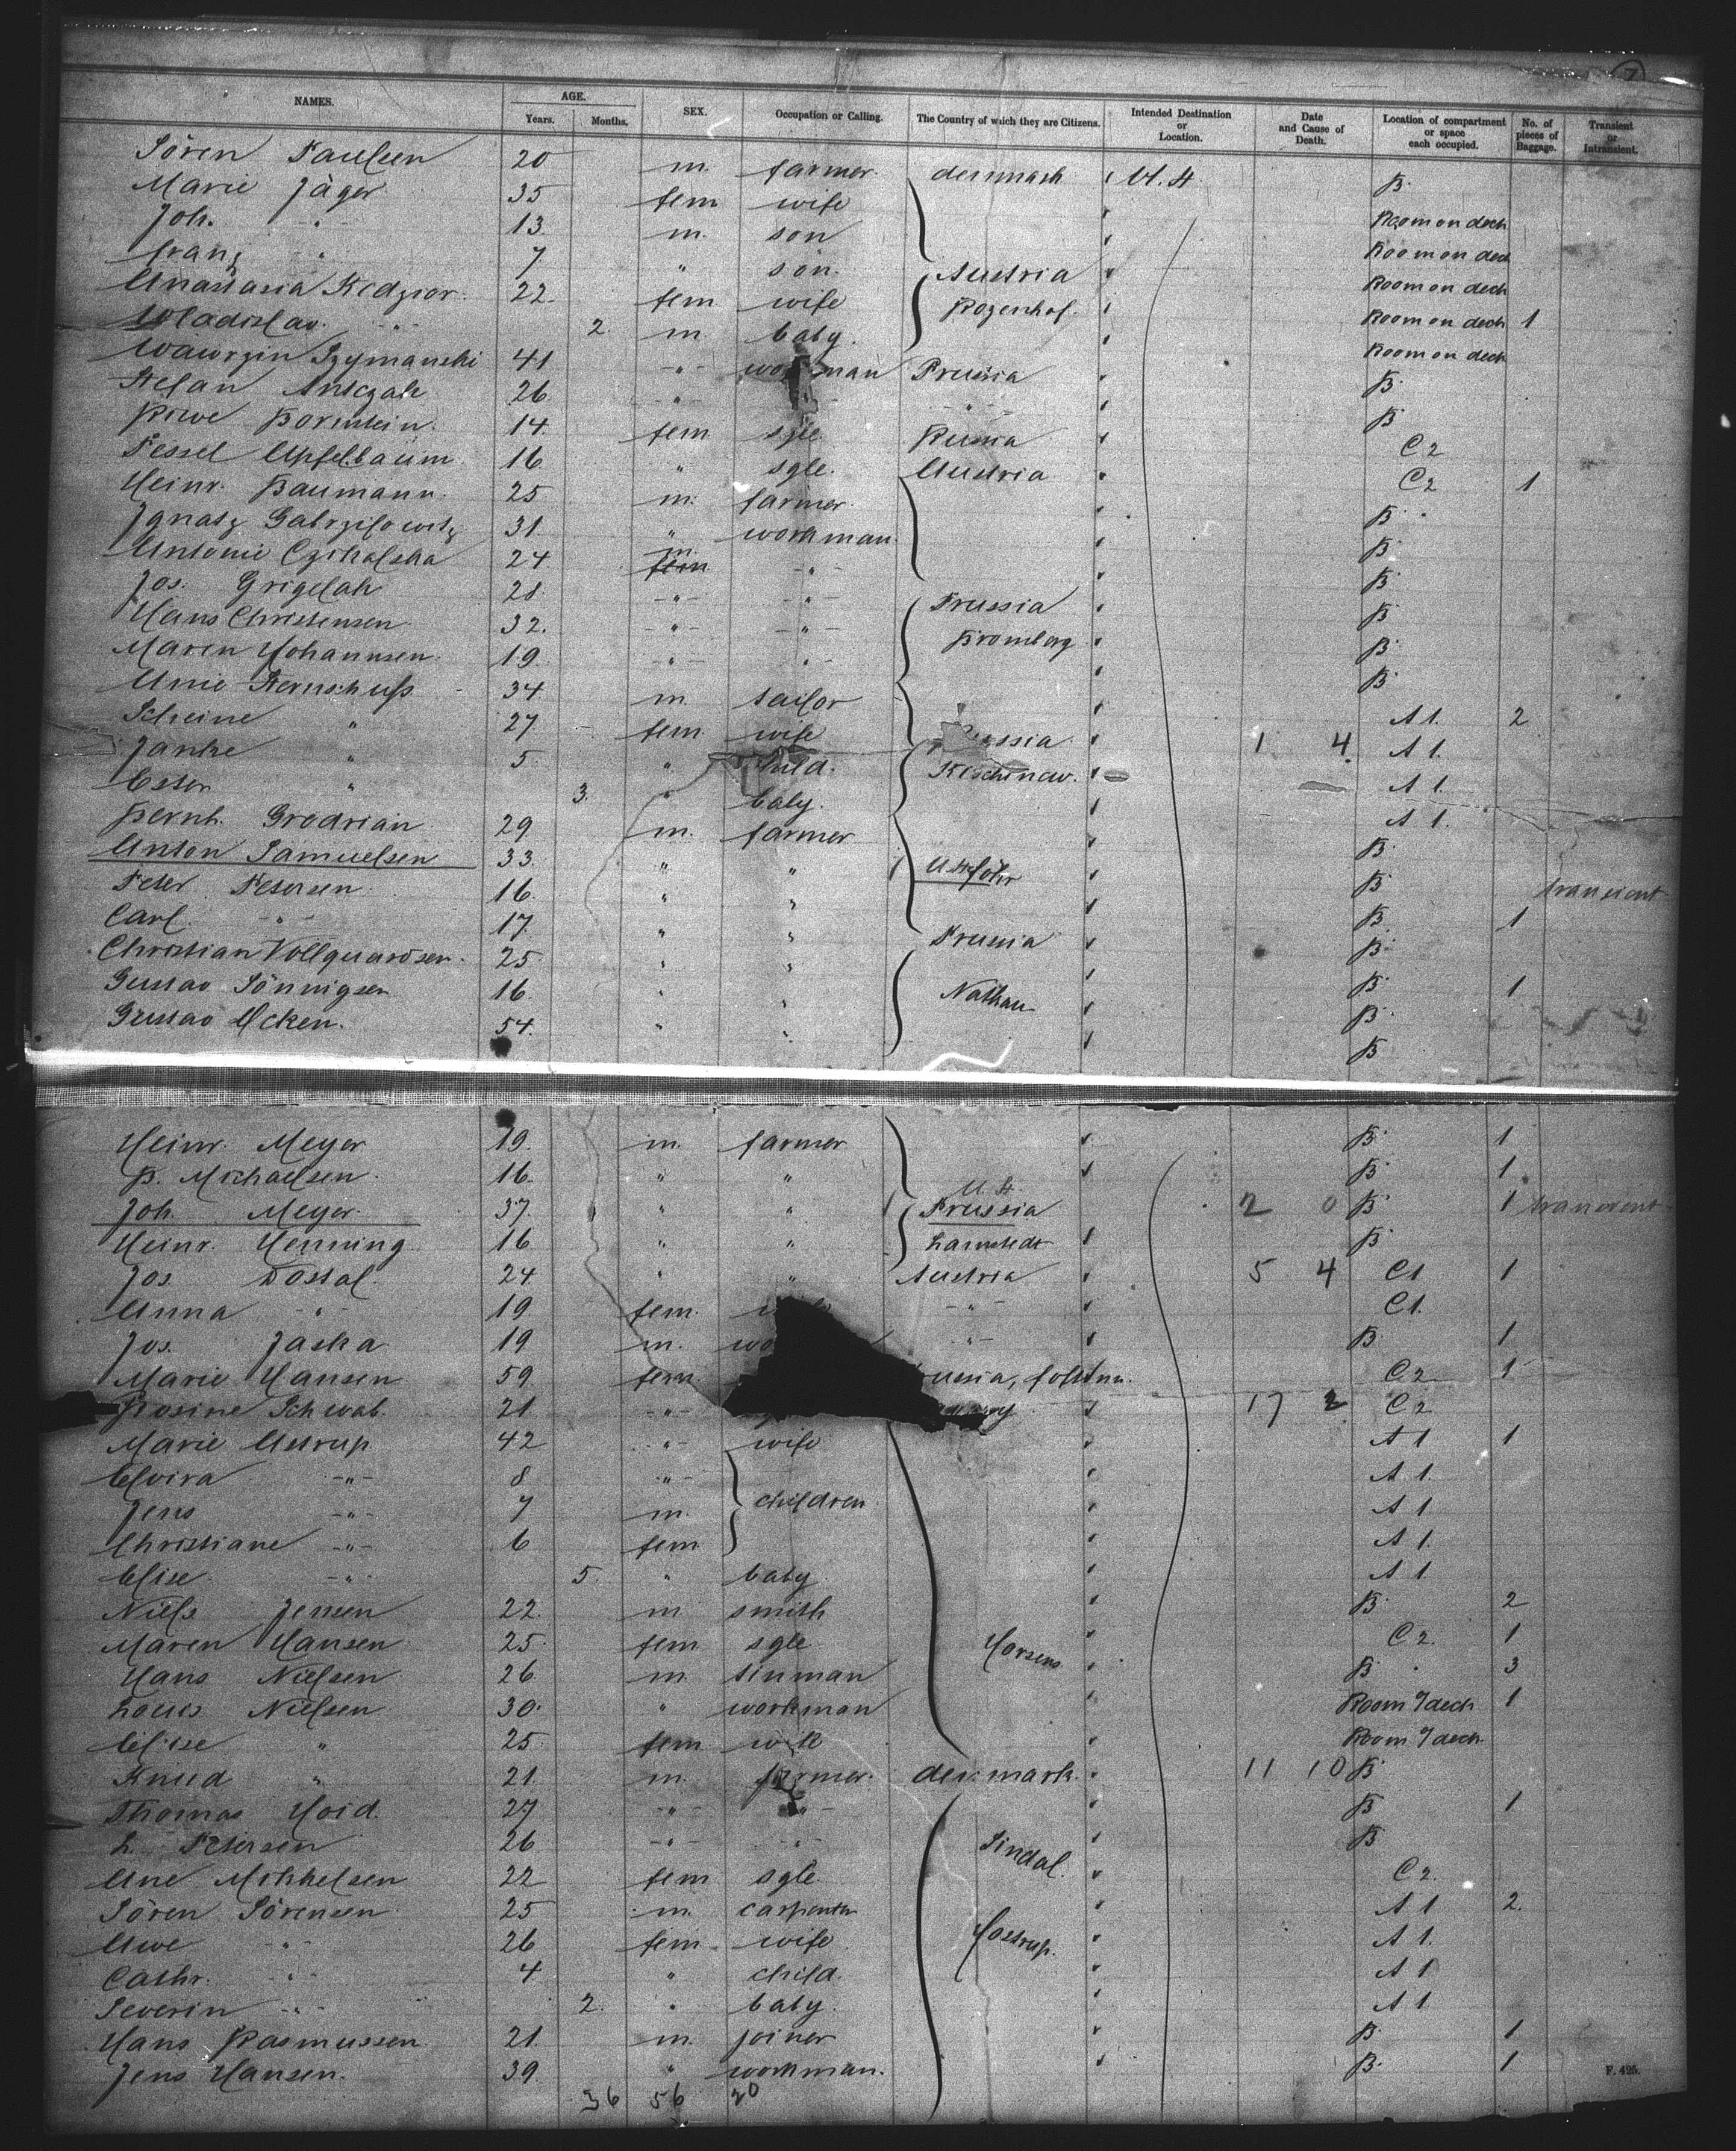 7
NAMES. AGE. Years. Months. SEX. Occupation or Calling. The Country of which they are Citizens. Intended Destination or Location. Date and Cause of Death. Location of compartment or space each occupied. No. of pieces of Baggage. Transient or Intransient.
Sören Paulsen 20 m. farmer denmark U.S. B.
Marie Jäger 35 fem wife Room on deck
Joh. " 13 m. son Room on deck
Franz " 7 " son. Austria Room on deck
Anastasia Kedzior 22 fem wife Rozenhof. Room on deck 1
Wladislav. -"- 2. m. baby. Room on deck
Wawrzin Szymanski 41 -"- workman Prussia B.
Stefan Antczak 26 -"- -"- B.
Riwe Bornstein. 14 fem sgle Russia C2
Pessel Apfelbaum 16 " sgle. Austria C2 1
Heinr. Baumann. 25 m. farmer B.
Ignatz Gabrzilowitz 31. " workman B.
Antonie Czikalska 24 m. fem -"- B.
Jos. Grigelak 28 -"- -"- Prussia B.
Hans Christensen 32. -"- -"- Bromberg B.
Maren Johannsen 19 -"- -"- B.
Sternschuss 34 m. tailor A1. 2
Scheine " 27 fem wife Russia 1 4 A1.
Janke " 5 " child. Kischinew. A1.
Ester " 3. " baby. A1.
Bernh. Grodrian 29 m. farmer B.
Anton Samuelsen 33 " " U.S. föhr B transient
Peter Petersen 16. " " B. 1
Carl -"- 17. " " Prussia B.
Christian Vollquardsen. 25 " " B. 1
Gustav Sönnigsen 16 " " B.
Gustav Ocken. 54. " " B
Heinr. Meyer 19. m. farmer B. 1
B. Michaelsen 16. " " U.S. B. 1
Joh. Meyer 37. " " Prussia 2 0 B. 1 transient
Heinr. Henning 16 " " Lamstedt B.
Jos. Dostal. 24 " " Austria 5 4 C1 1
Anna -"- 19 fem. -"- C1.
Jos. Jaska 19 m. -"- B. 1
Marie Hansen 59 fem. C2 1
Rosine Schwab. 21 -"- 17 2 C2
Marie Astrup 42 -"- wife A1 1
Elvira -"- 8 -"- children A1.
Jens -"- 7 m. A1
Christiane -"- 6 fem A1.
Elise -"- 5. " baby A1
Niels Jensen 22. m smith B. 2
Maren Hansen 25 fem sgle Horsens C2. 1
Hans Nielsen 26 m. tinman B. 3
Louis Nielsen 30. " workman Room o/deck 1
Elise " 25 fem wife Room o/deck.
Knud " 21. m. farmer. denmark. 11 10 B.
Thomas Hoid. 27 -"- -"- B. 1
L. Petersen 26 -"- -"- Sindal. B.
Ane Mikkelsen 22 fem sgle. C2.
Sören Sörensen 25 m. carpenter A1 2.
Ane -"- 26 fem wife Hostrup. A1.
Cathr. -"- 4 " child. A1
Severin -"- 2. " baby. A1.
Hans Rasmussen 21. m. joiner B. 1
Jens Hansen. 39. " workman. B. 1
36 56 20
F. 425.